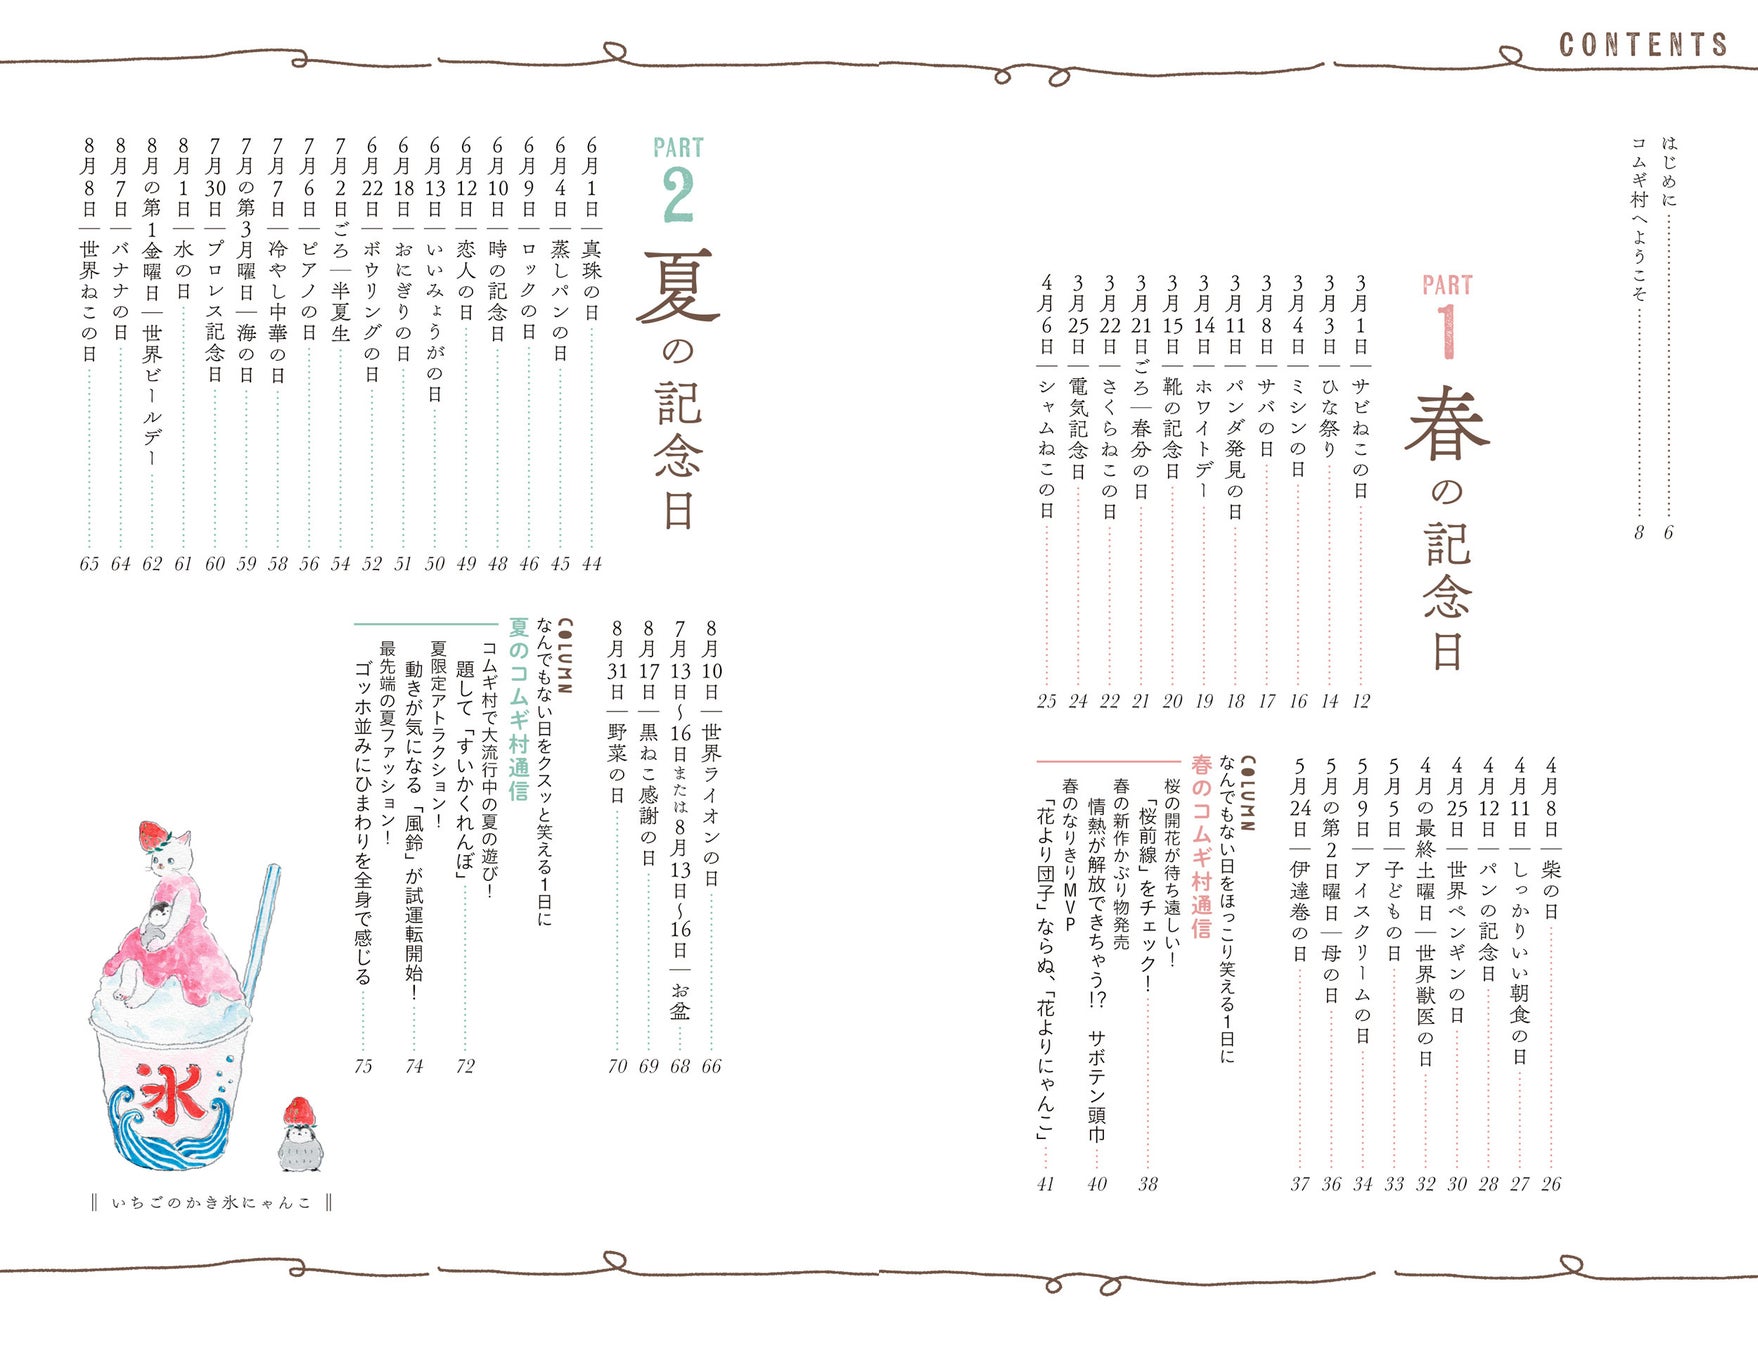 CONTENTS
はじめに 6
コムギ村へようこそ 8
PART
1
春の記念日
3月1日―サビねこの日 12
3月3日―ひな祭り 14
3月4日―ミシンの日 16
3月8日―サバの日 17
3月11日―パンダ発見の日 18
3月14日―ホワイトデー 19
3月15日―靴の記念日 20
3月21日ごろ―春分の日 21
3月22日―さくらねこの日 22
3月25日―電気記念日 24
4月6日―シャムねこの日 25
4月8日―柴の日 26
4月11日―しっかりいい朝食の日 27
4月12日―パンの記念日 28
4月25日―世界ペンギンの日 30
4月の最終土曜日―世界獣医の日 32
5月5日―子どもの日 33
5月9日―アイスクリームの日 34
5月の第2日曜日―母の日 36
5月24日―伊達巻の日 37
COLUMN
なんでもない日をほっこり笑える1日に
春のコムギ村通信
桜の開花が待ち遠しい!
「桜前線」をチェック! 38
春の新作かぶり物発売
情熱が解放できちゃう!? サボテン頭巾 40
春のなりきりMVP
「花より団子」ならぬ、「花よりにゃんこ」 41
PART
2
夏の記念日
6月1日―真珠の日 44
6月4日―蒸しパンの日 45
6月9日―ロックの日 46
6月10日―時の記念日 48
6月12日―恋人の日 49
6月13日―いいみょうがの日 50
6月18日―おにぎりの日 51
6月22日―ボウリングの日 52
7月2日ごろ―半夏生 54
7月6日―ピアノの日 56
7月7日―冷やし中華の日 58
7月の第3月曜日―海の日 59
7月30日―プロレス記念日 60
8月1日―水の日 61
8月の第1金曜日―世界ビールデー 62
8月7日―バナナの日 64
8月8日―世界ねこの日 65
8月10日―世界ライオンの日 66
7月13日〜16日または8月13日〜16日―お盆 68
8月17日―黒ねこ感謝の日 69
8月31日―野菜の日 70
COLUMN
なんでもない日をクスッと笑える1日に
夏のコムギ村通信
コムギ村で大流行中の夏の遊び!
題して「すいかくれんぼ」 72
夏限定アトラクション!
動きが気になる「風鈴」が試運転開始! 74
最先端の夏ファッション!
ゴッホ並みにひまわりを全身で感じる 75
氷
いちごのかき氷にゃんこ